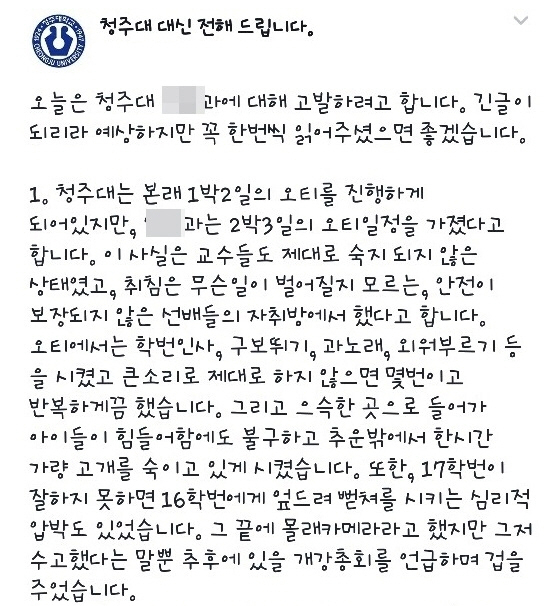 청주대 대신 전해 드립니다.
1924 · 청주대학교 · 1947
CHEONGJU UNIVERSITY
오늘은 청주대 과에 대해 고발하려고 합니다. 긴글이
되리라 예상하지만 꼭 한번씩 읽어주셨으면 좋겠습니다.
1. 청주대는 본래 1박2일의 오티를 진행하게
되어있지만, 과는 2박3일의 오티일정을 가졌다고
합니다. 이 사실은 교수들도 제대로 숙지 되지 않은
상태였고, 취침은 무슨일이 벌어질지 모르는, 안전이
보장되지 않은 선배들의 자취방에서 했다고 합니다.
오티에서는 학번인사, 구보뛰기, 과노래, 외워부르기 등
을 시켰고 큰소리로 제대로 하지 않으면 몇번이고
반복하게끔 했습니다. 그리고 으슥한 곳으로 들어가
아이들이 힘들어함에도 불구하고 추운밖에서 한시간
가량 고개를 숙이고 있게 시켰습니다. 또한, 17학번이
잘하지 못하면 16학번에게 엎드려 뻗쳐를 시키는 심리적
압박도 있었습니다. 그 끝에 몰래카메라라고 했지만 그저
수고했다는 말뿐 추후에 있을 개강총회를 언급하며 겁을
주었습니다.